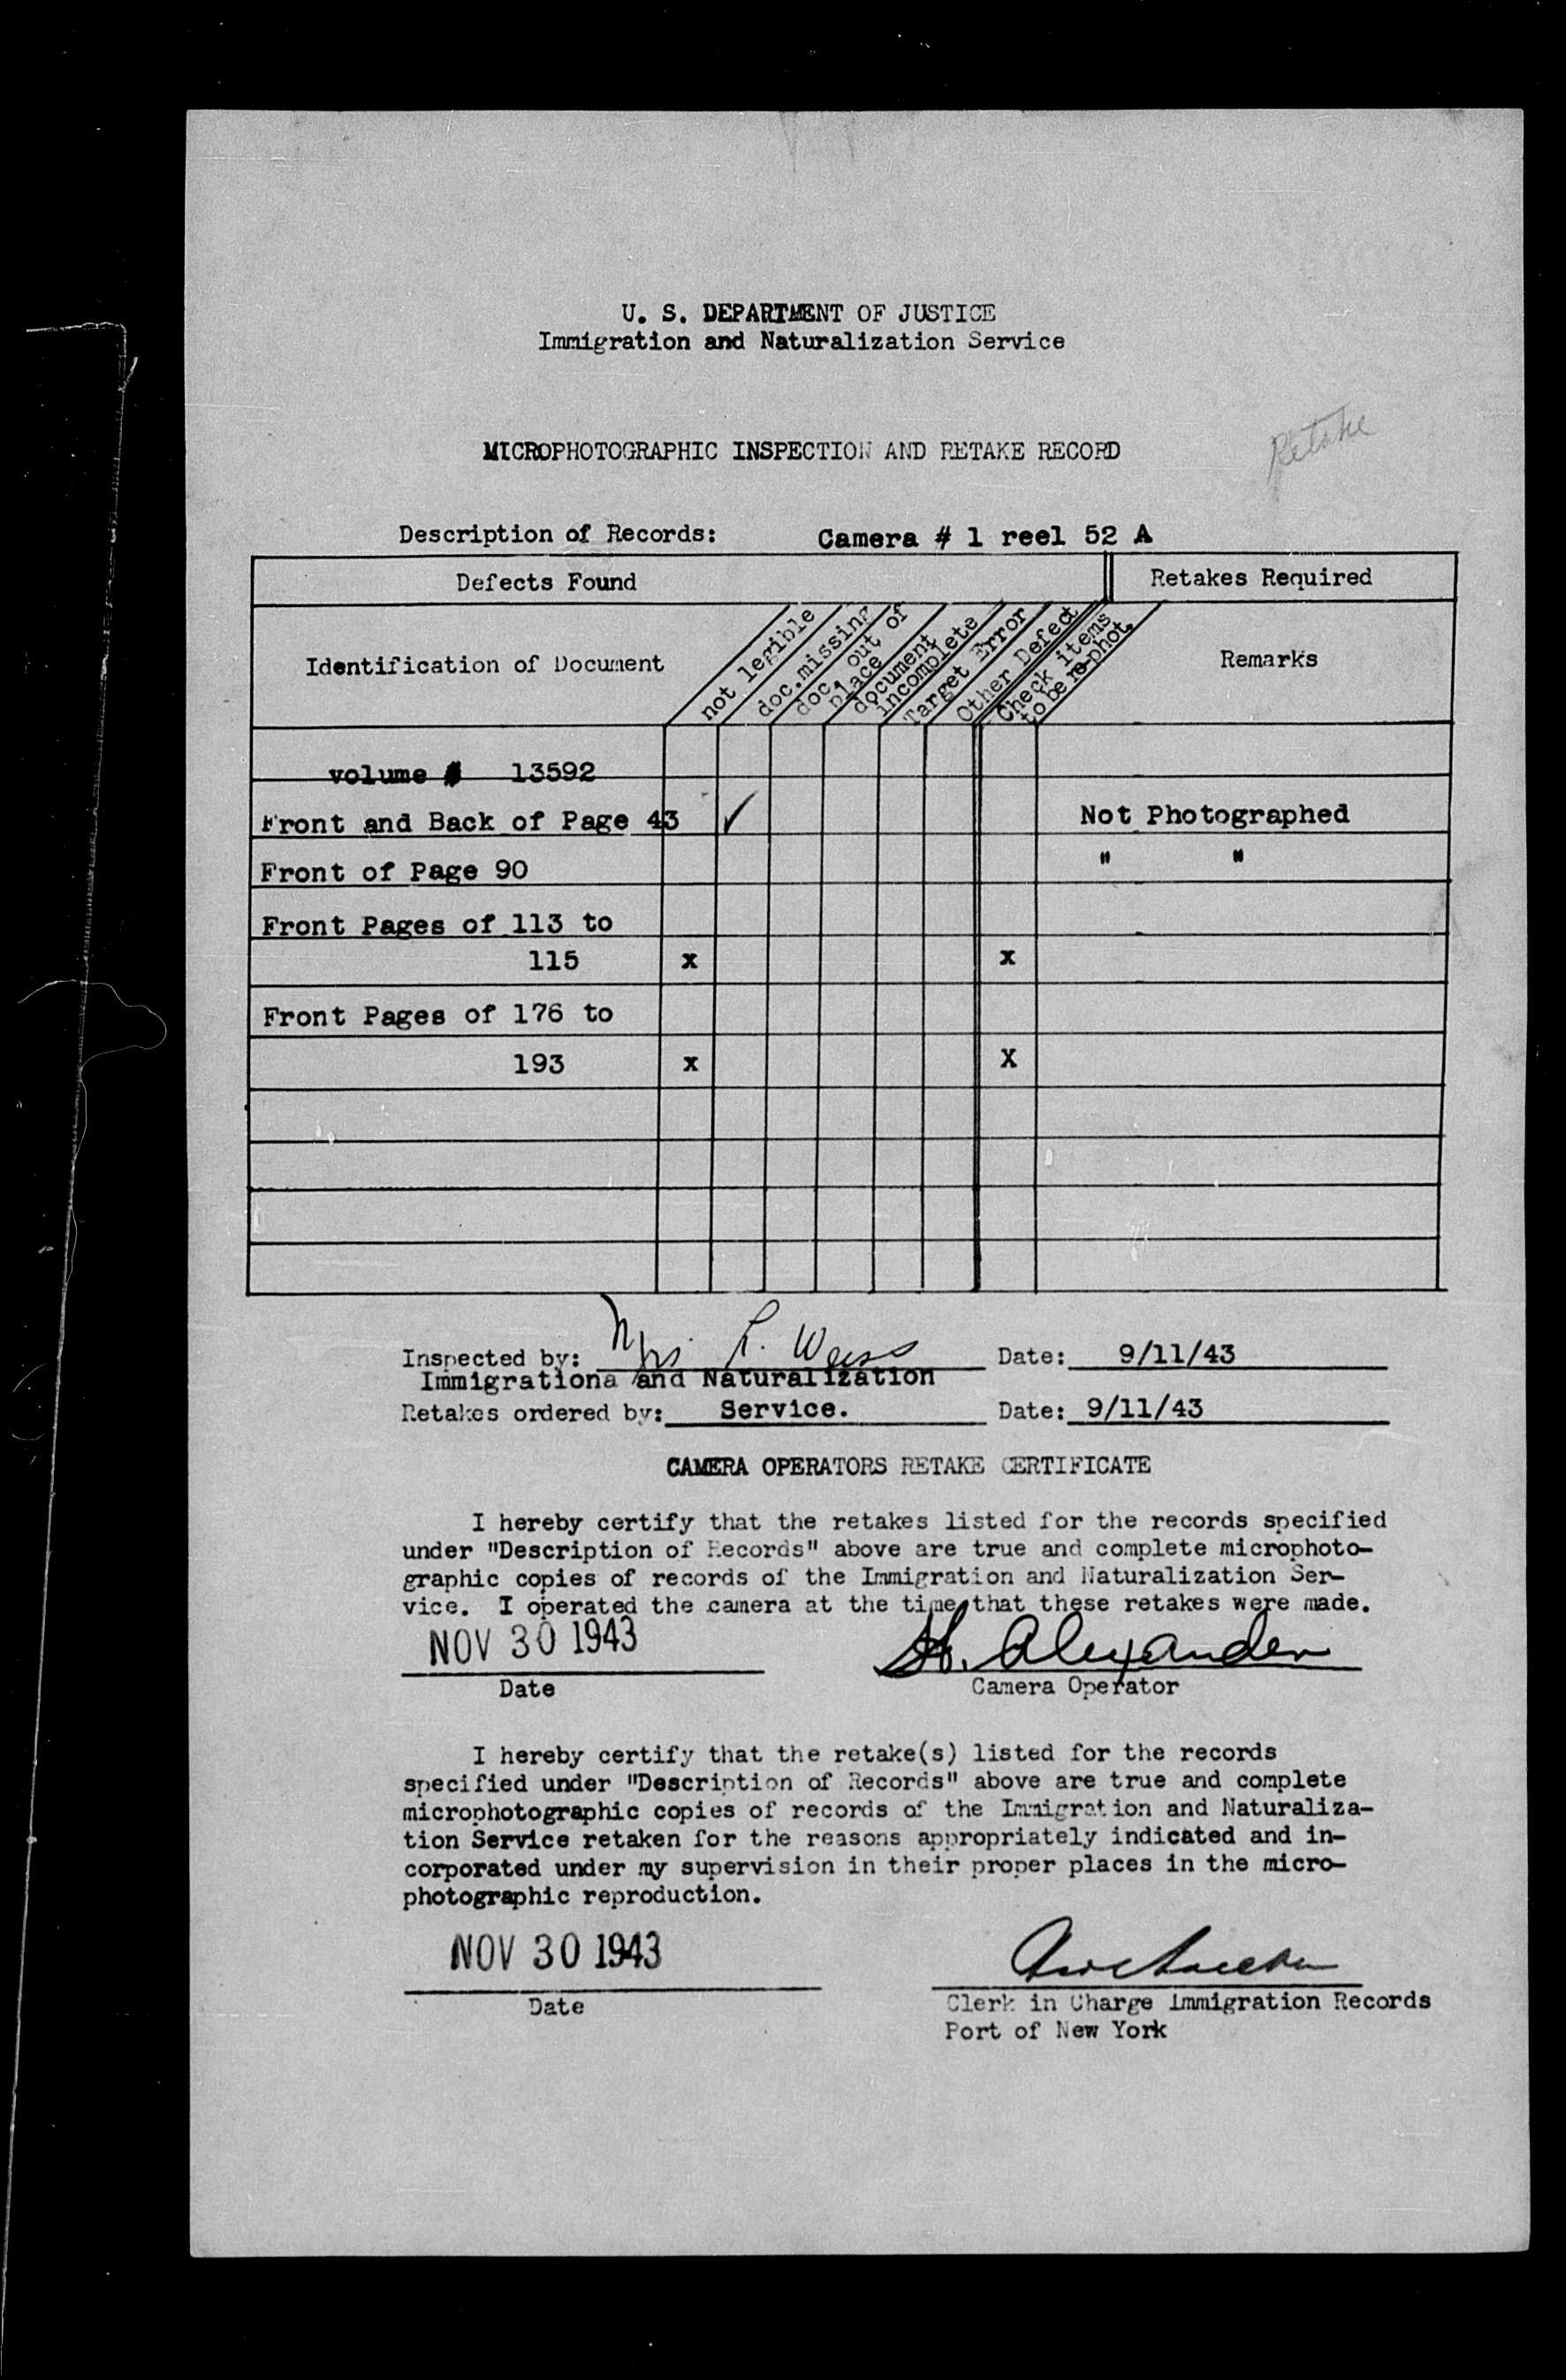 U. S. DEPARTMENT OF JUSTICE
Immigration and Naturalization Service
MICROPHOTOGRAPHIC INSPECTION AND RETAKE RECORD
Retake
Description of Records: Camera # 1 reel 52 A
Defects Found Retakes Required
Identification of Document
not legible
doc. missing
doc. out of
place
document
incomplete
Target Error
Other Defect
Check items
to be re-phot.
Remarks
volume # 13592
Front and Back of Page 43 ✓ Not Photographed
Front of Page 90 " "
Front Pages of 113 to
115 x x
Front Pages of 176 to
193 x X
Inspected by: Mrs R. Weiss Date: 9/11/43
Immigrationa and Naturalization
Retakes ordered by: Service. Date: 9/11/43
CAMERA OPERATORS RETAKE CERTIFICATE
I hereby certify that the retakes listed for the records specified
under "Description of Records" above are true and complete microphoto-
graphic copies of records of the Immigration and Naturalization Ser-
vice. I operated the camera at the time that these retakes were made.
NOV 30 1943 H. Alexander
Date Camera Operator
I hereby certify that the retake(s) listed for the records
specified under "Description of Records" above are true and complete
microphotographic copies of records of the Immigration and Naturaliza-
tion Service retaken for the reasons appropriately indicated and in-
corporated under my supervision in their proper places in the micro-
photographic reproduction.
NOV 30 1943
Date Clerk in Charge Immigration Records
Port of New York